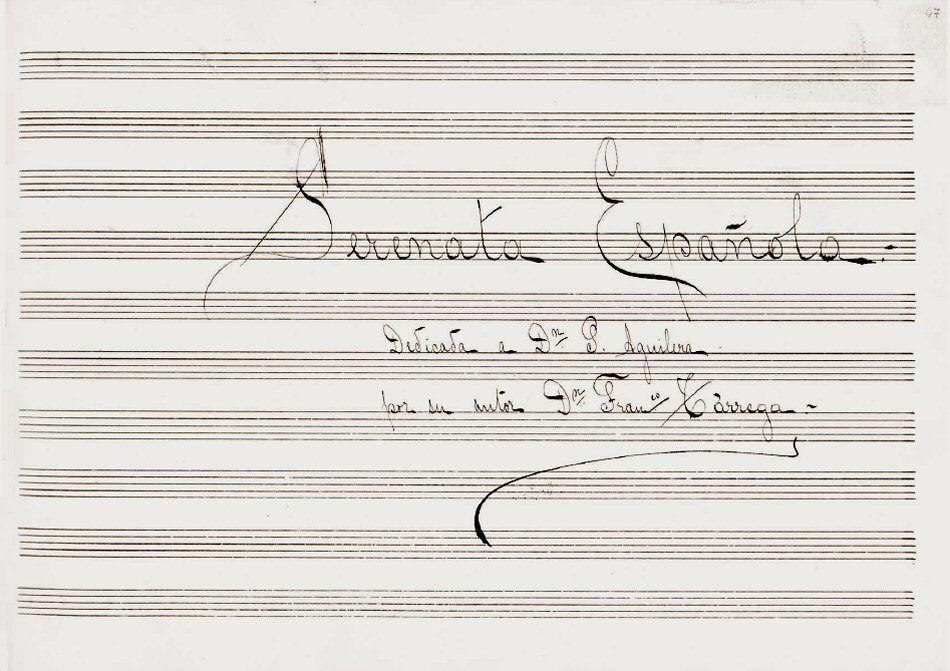 47
Serenata Española.-
Dedicada a Dn. S. Aguilera.
por su autor Dn. Franco Tàrrega.-